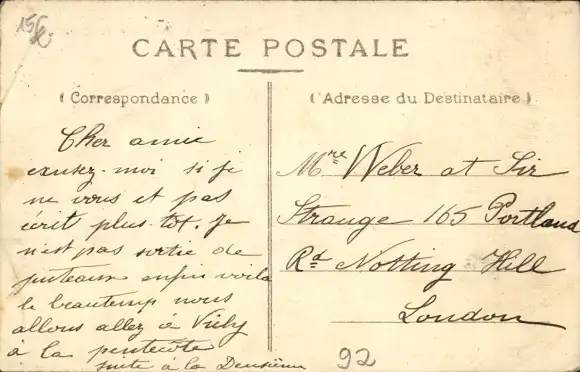 CARTE POSTALE
( Correspondance )
( Adresse du Destinataire )
Cher amie
exusez-moi si je
ne vous et pas
écrit plus tot. Je
n'est pas sortie de
puteaux enfin voila
le beautemp nous
allons allez à Vichy
à la pentecôte
suite à la Deusième
Mre Weber at Sir
Strange 165 Portland
Rd Notting Hill
London
92